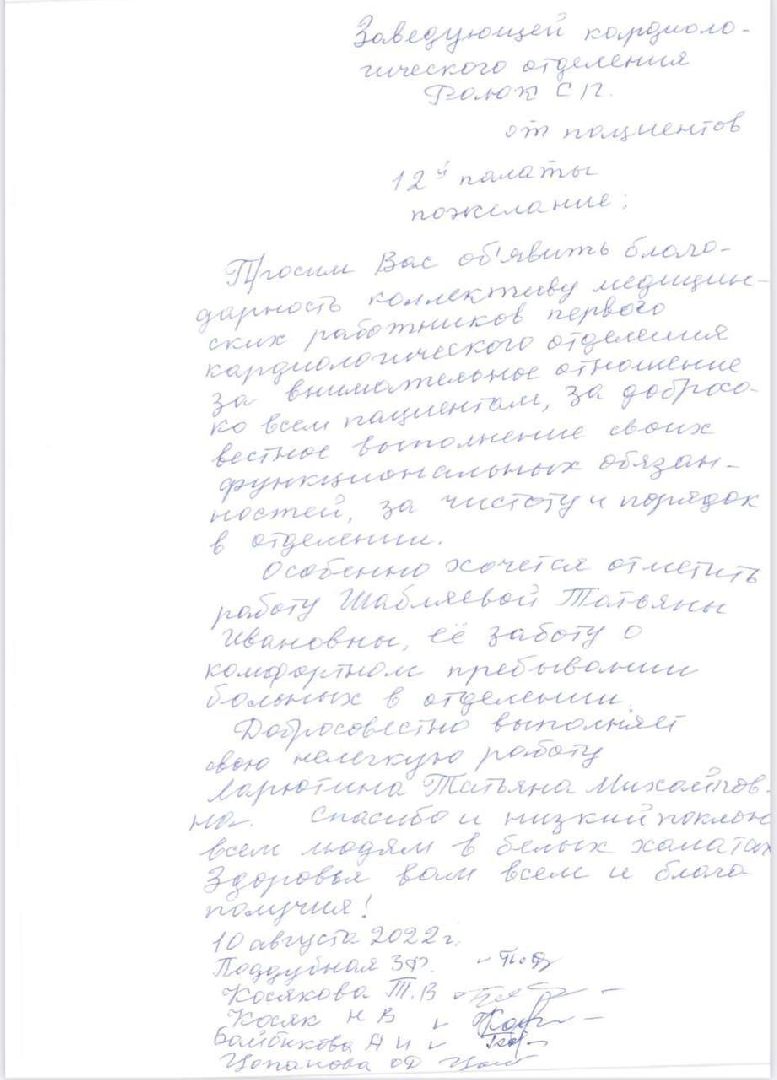 Заведующей кардиоло-
гического отделения
С П.
от пациентов
12й палаты
пожелание;
Просим Вас объявить благо-
дарность коллективу медицин-
ских работников первого
кардиологического отделения
за внимательное отношение
ко всем пациентам, за добросо-
вестное выполнение своих
функциональных обязан-
ностей, за чистоту и порядок
в отделении.
Особенно хочется отметить
работу Шабляевой Татьяны
Ивановны, её заботу о
комфортном пребывании
больных в отделении.
Добросовестно выполняет
свою нелегкую работу
Ларютина Татьяна Михайлов-
на. Спасибо и низкий поклон
всем людям в белых халатах
Здоровья вам всем и благо
получия!
10 августа 2022 г.
Поддубная З.Ф.
Косякова Т.В
Косяк Н В
Байбикова А И
Цопанова